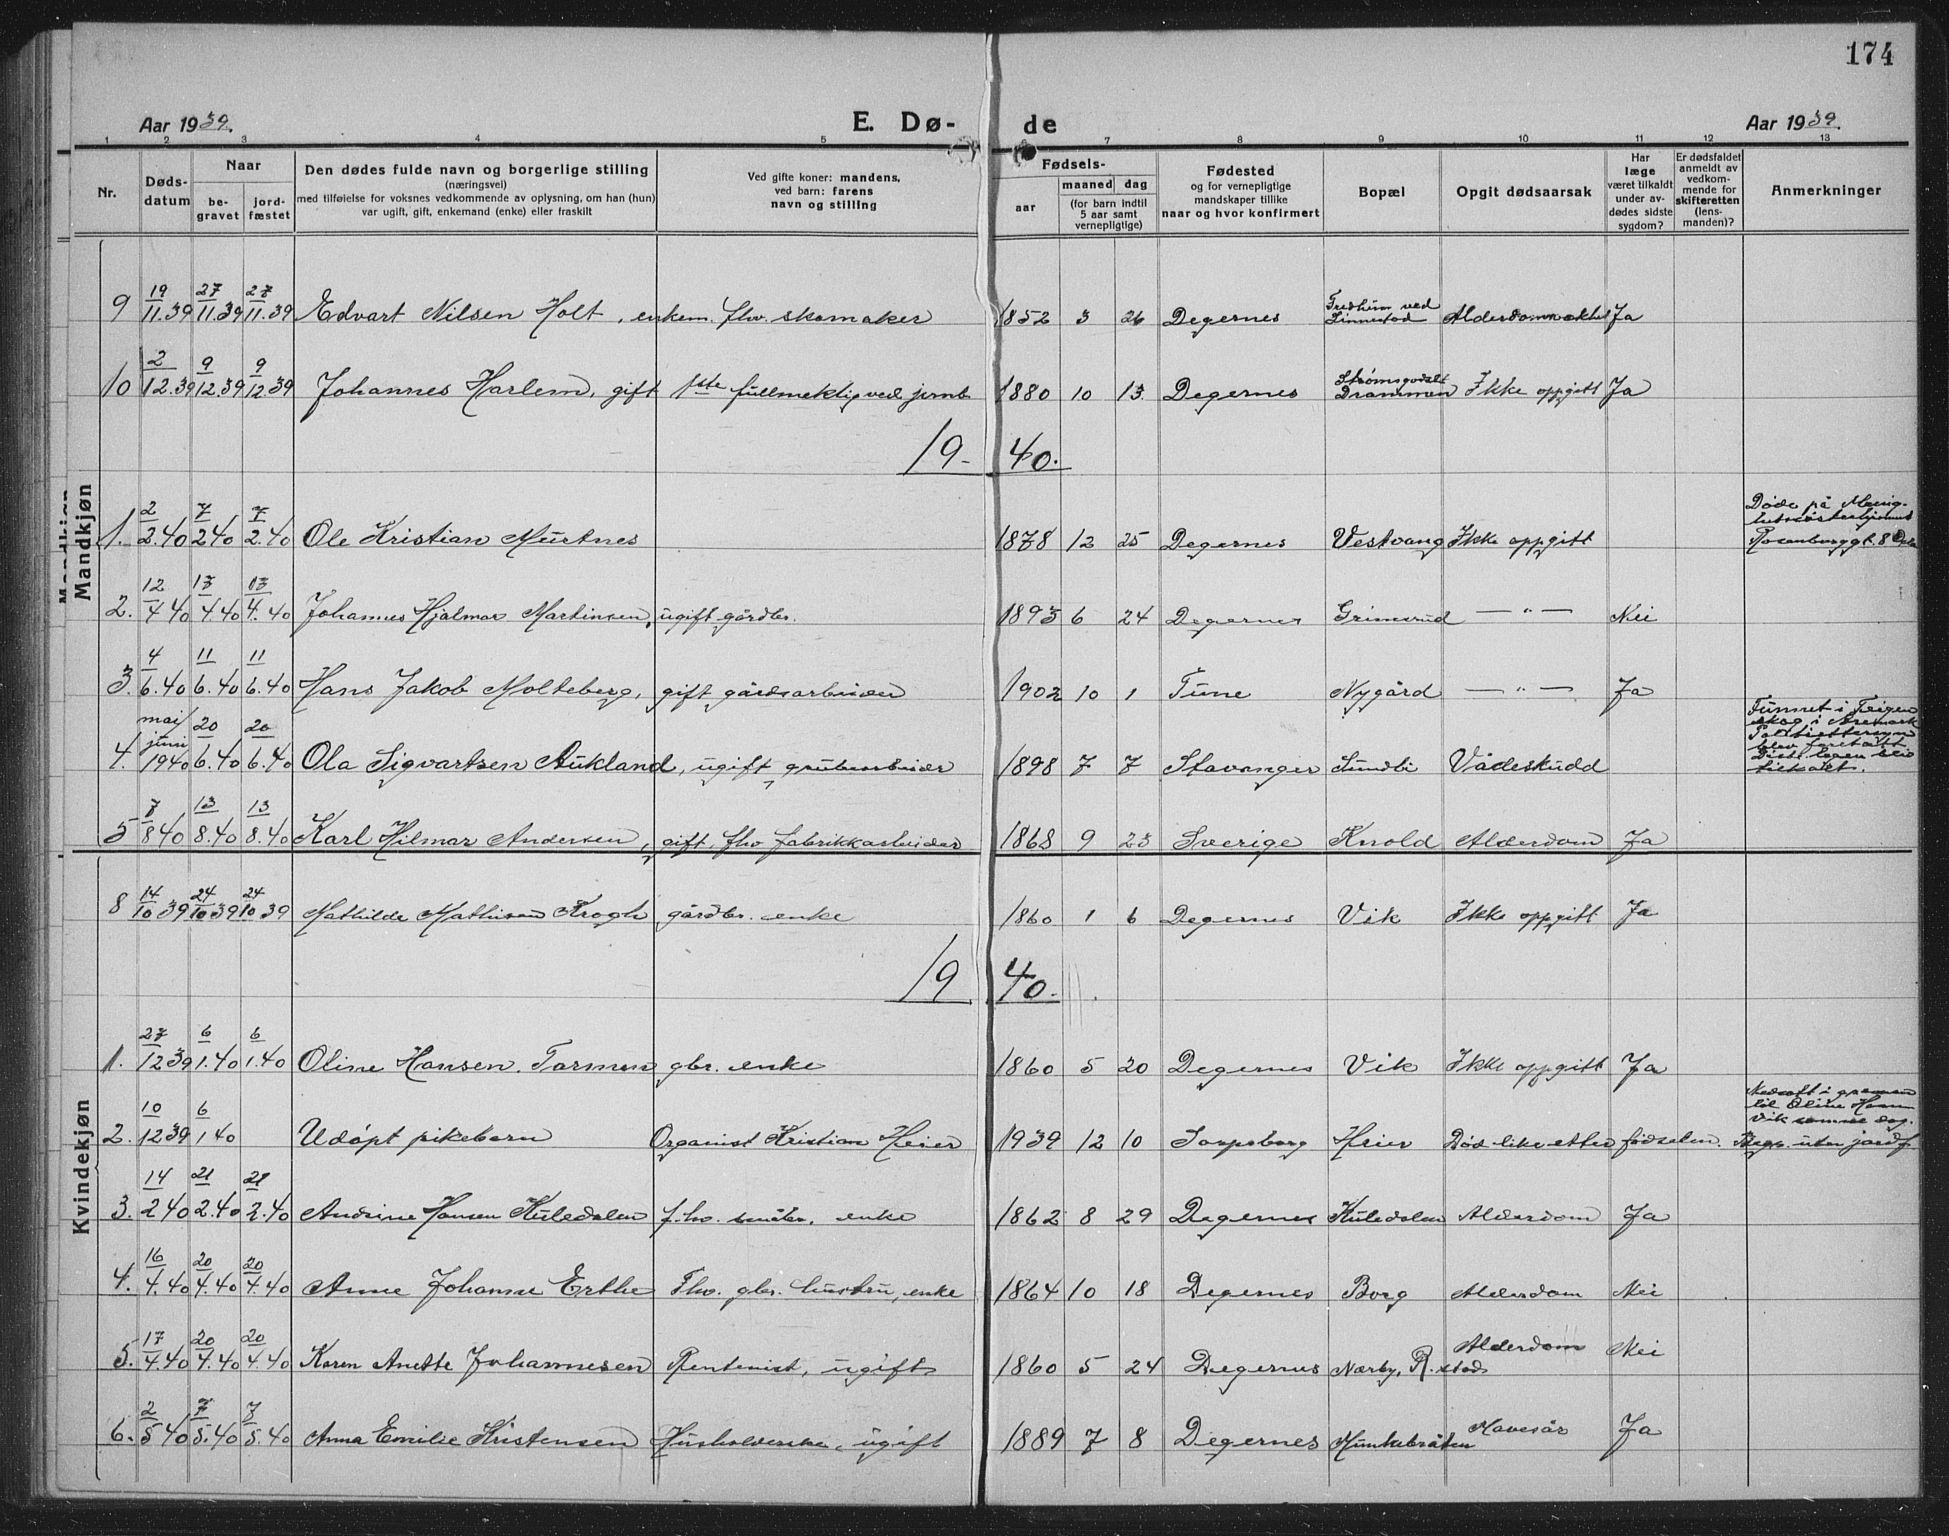 174
Aar 1939.
E. Dø-
de
Aar 1939.
1 2 3 4 5 7 8 9 10 11 12 13
Nr.
Døds-
datum
Naar
be-
gravet
jord-
fæstet
Den dødes fulde navn og borgerlige stilling
(næringsvei)
med tilføielse for voksnes vedkommende av oplysning, om han (hun)
var ugift, gift, enkemand (enke) eller fraskilt
Ved gifte koner: mandens,
ved barn: farens
navn og stilling
Fødsels-
aar
maaned
dag
(for barn indtil
5 aar samt
vernepligtige)
Fødested
og for vernepligtige
mandskaper tillike
naar og hvor konfirmert
Bopæl
Opgit dødsaarsak
Har
læge
været tilkaldt
under av-
dødes sidste
sygdom?
Er dødsfaldet
anmeldt av
vedkom-
mende for
skifteretten
(lens-
manden)?
Anmerkninger
Mandkjøn
9 19/11.39 27/11.39 27/11.39 Edvart Nilsen Holt, enkem. fhv. skomaker 1852 3 26 Degernes Fredheim ved Linnestad Ja
10 2/12.39 9/12.39 9/12.39 Johannes Harlem, gift 1ste fullmektig ved jernb. 1880 10 13 Degernes Strømsgodset Drammen Ikke oppgitt Ja
19-40.
1. 2/2.40 7/2.40 7/2.40 Ole Kristian 1878 12 25 Degernes Vestvang Ikke oppgitt Døde på
Rosenborggt. 8
2. 12/4.40 17/4.40 17/4.40 Johannes Hjalmar Martinsen, ugift gårdbr. 1893 6 24 Degernes Grimsrud — " — Nei
3. 4/6.40 11/6.40 11/6.40 Hans Jakob Molteberg, gift gårdsarbeider 1902 10 1 Tune Nygård — " — Ja
4. mai/juni 1940 20/6.40 20/6.40 Ola Sigvartsen Aukland, ugift, grubearbeider 1898 7 7 Stavanger Sundbi Vådeskudd Funnet i Teigen
skog i Aremark
blev foretatt.
5 7/8.40 13/8.40 13/8.40 Karl Hilmar Andersen, gift, fhv. fabrikkarbeider 1868 9 23 Sverige Knold Alderdom Ja
Kvindekjøn
8 14/10.39 24/10.39 24/10.39 Mathilde Mathisen Krogh gårdbr. enke 1860 1 6 Degernes Vik Ikke oppgitt Ja
19 40.
1. 27/12.39 6/1.40 6/1.40 Oline Hansen Tormen gbr. enke 1860 5 20 Degernes Vik Ikke oppgitt Ja
2. 10/12.39 6/1.40 Udøpt pikebarn Organist Kristian Heier 1939 12 10 Sarpsborg Heier Død like etter fødselen. Nedsatt i graven
til Oline Hansen
Vik samme dag.
Begr. uten jordf.
3. 14/2.40 21/2.40 21/2.40 Andrine Hansen Kuledalen f.hv. småbr. enke 1862 8 29 Degernes Kuledalen Alderdom Ja
4. 16/4.40 20/4.40 20/4.40 Anne Johanne Erthe Fhv. gbr. hustru, enke 1864 10 18 Degernes Borg Alderdom Nei
5. 17/4.40 20/4.40 20/4.40 Karen Anette Johannesen Rentenist, ugift 1860 5 24 Degernes Nærby, R.stad Alderdom Nei
6. 2/5.40 7/5.40 7/5.40 Anna Emilie Kristensen Husholderske, ugift 1889 7 8 Degernes Munkebråten Mavesår Ja